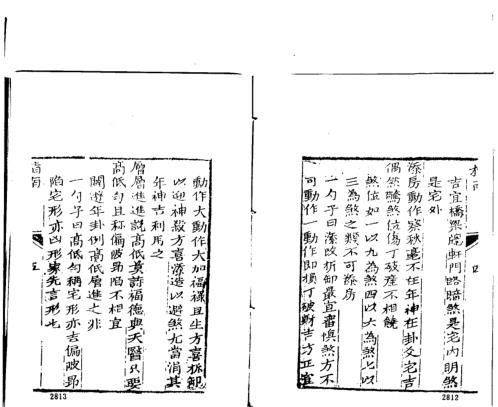 吉宜橋梁碗軒門路暗煞是宅內明煞
是宅外
添房動作察秋毫不在年神在卦爻宅吉
偶然騰煞位傷丁破產不相饒
煞位如一以九為煞四以六為煞七以
三為煞之類不可添房
一勺子曰添改拆卸最宜審慎煞方不
可動作一動作即損丁破財吉方正宜
2812
動作大動作大加福祿且生方喜拆卸
以迎神殺方喜添造以避煞尤當涓其
年神吉利為之
層層進進說高低莫誇福德與天醫只要
高低勻且称偏陂昂陷不相宜
關遊年卦例高低層進之非
一勺子曰高低勻稱宅形亦吉偏陂昂
陷宅形亦凶形家先言形也
指南
五
2813